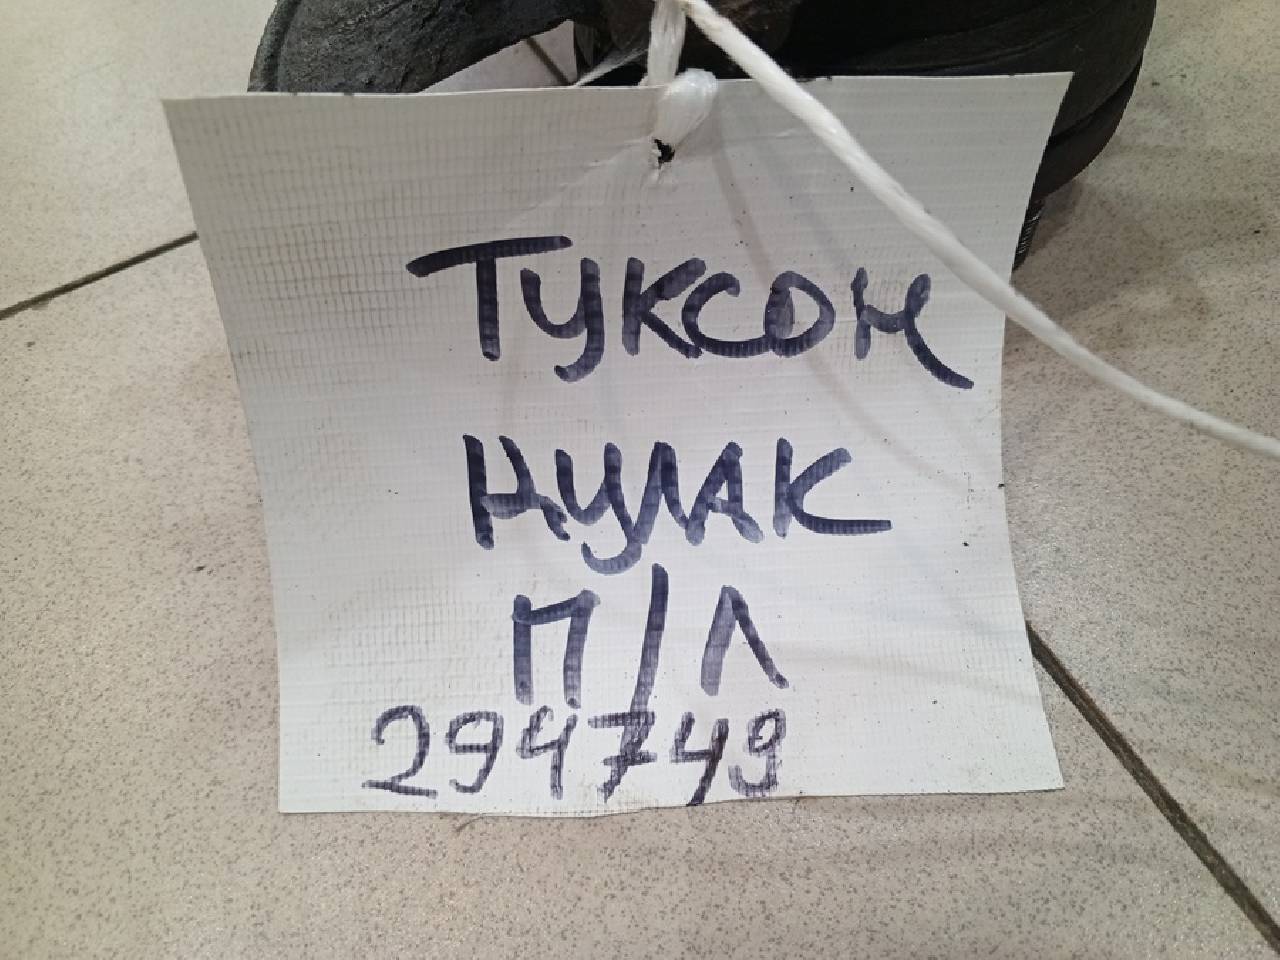 Туксон
нулак
П/Л
294749